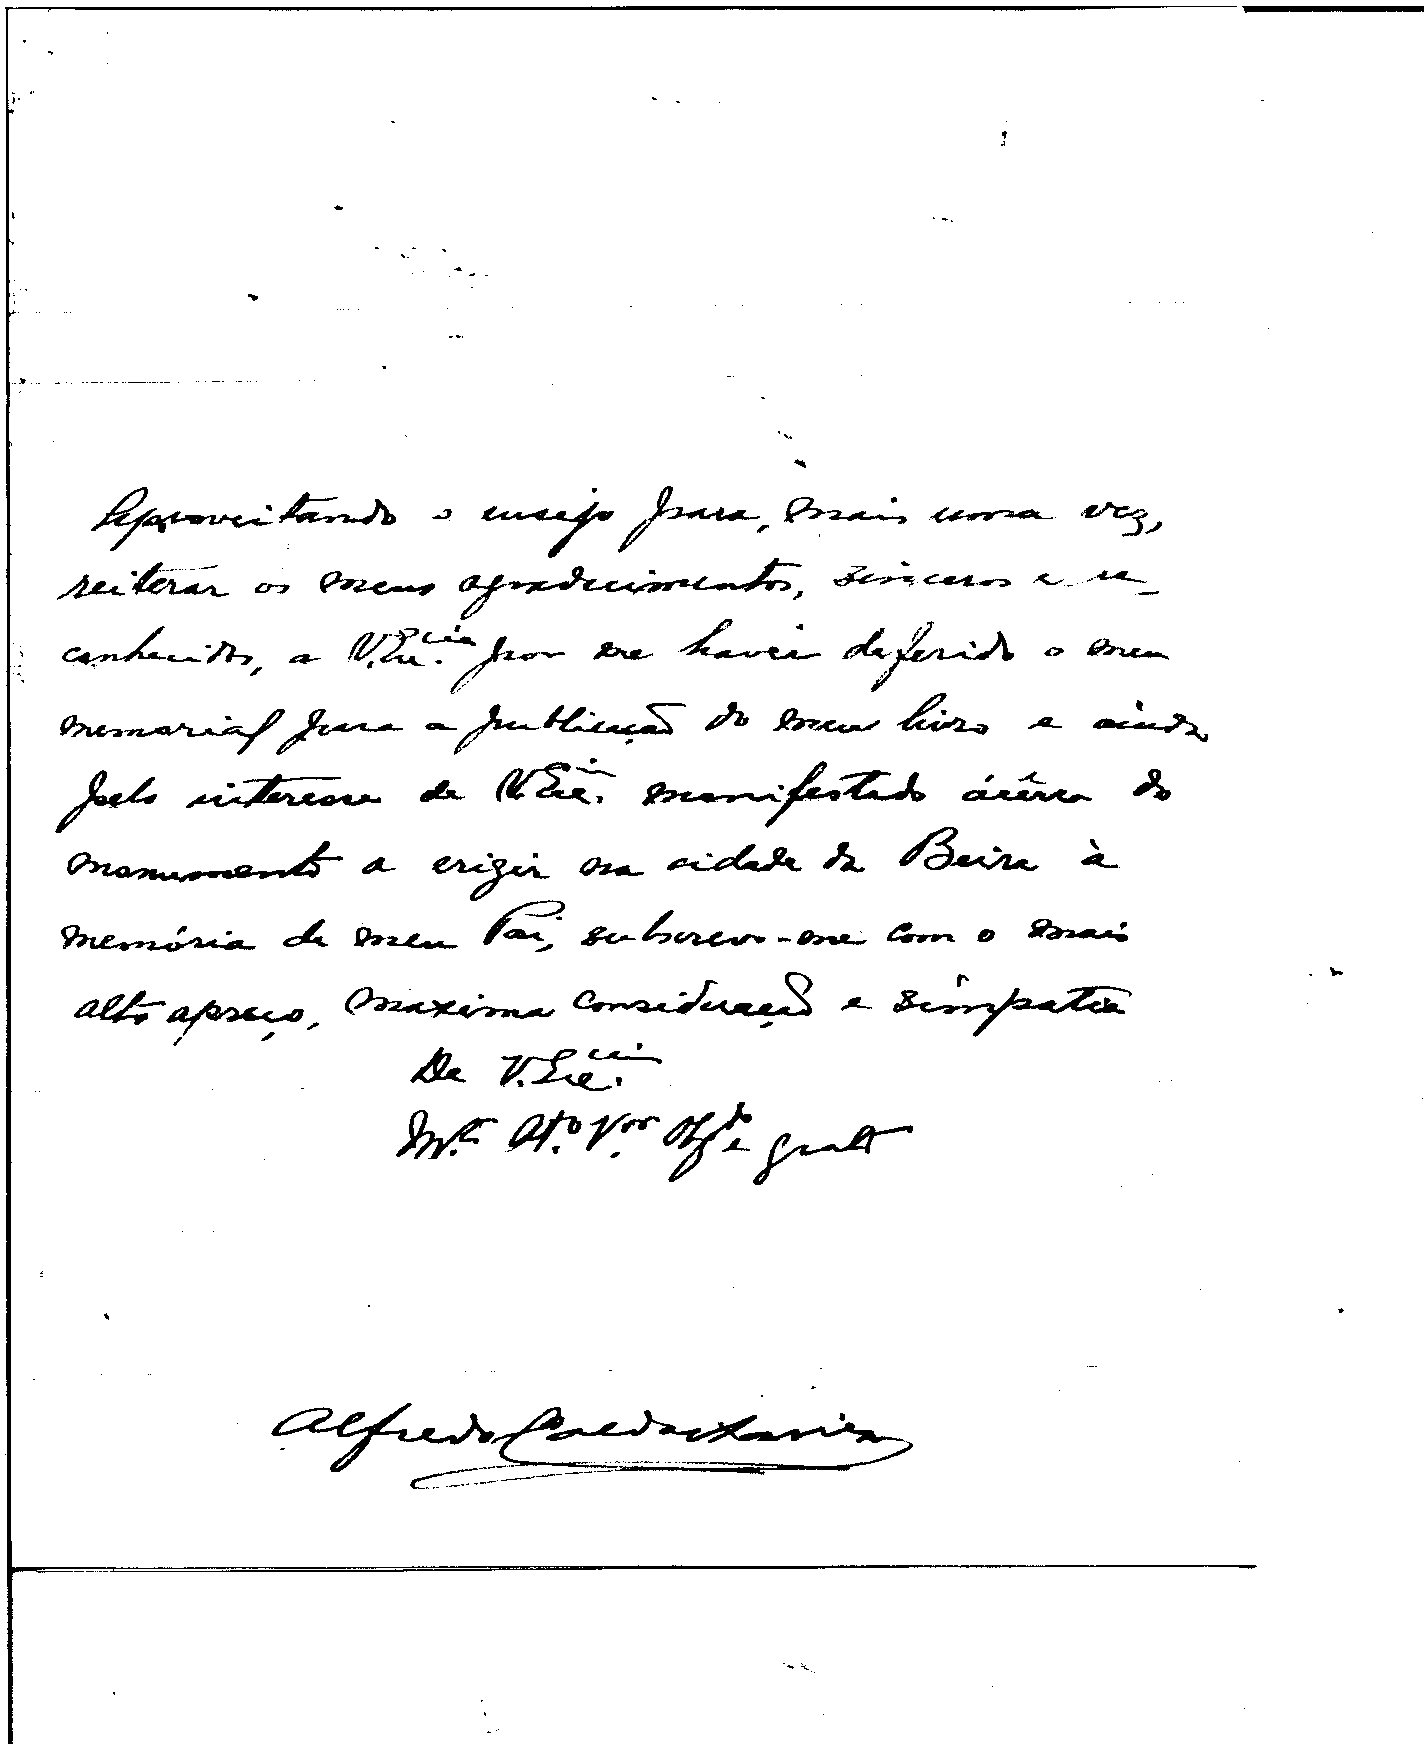 Aproveitando o ensejo para, mais uma vez,
reiterar os meus agradecimentos, sinceros e re-
conhecidos, a V. Exa.cia por me haver deferido o meu
memorial para a publicação do meu livro e ainda
pelo interesse de V. Excia. manifestado ácêrca do
monumento a erigir na cidade da Beira à
memória de meu Pai, subscrevo-me com o mais
alto apreço, maxima consideração e simpatia
De V. Excia.
Mto. Ato. Vor. Obgdo e grato
Alfredo Caldas Xavier